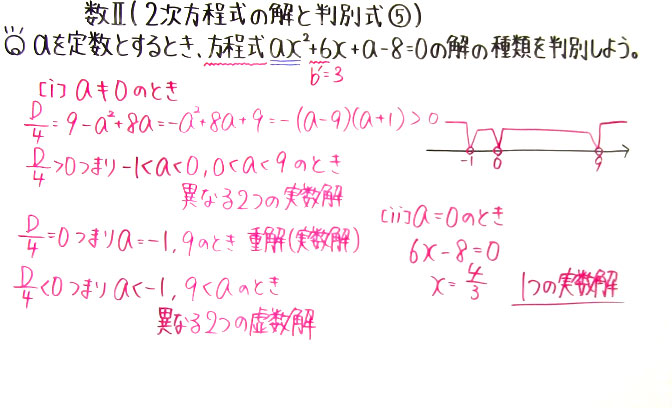 数Ⅱ(2次方程式の解と判別式⑤)
Q aを定数とするとき、方程式ax²+6x+a-8=0の解の種類を判別しよう。
b'=3
[i] a≠0のとき
D/4=9-a²+8a=-a²+8a+9=-(a-9)(a+1)>0
-1 0 9
D/4>0つまり-1<a<0,0<a<9のとき
異なる2つの実数解
D/4=0つまりa=-1,9のとき 重解(実数解)
D/4<0つまりa<-1,9<aのとき
異なる2つの虚数解
[ii]a=0のとき
6x-8=0
x=4/3 1つの実数解